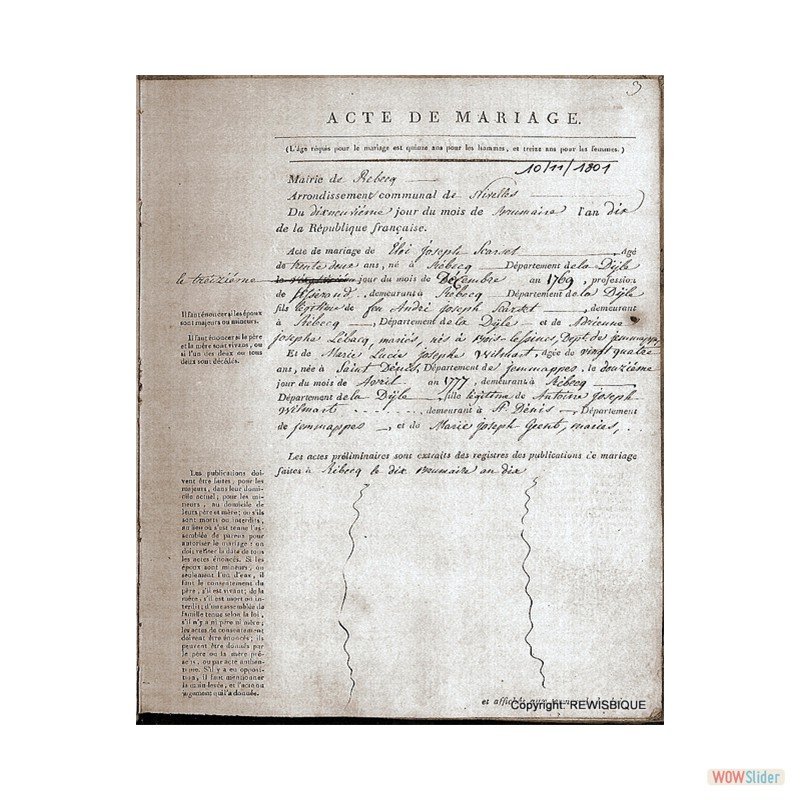 3
ACTE DE MARIAGE.
(L'âge réquis pour le mariage est quinze ans pour les hommes, et treize ans pour les femmes.)
10/11/1801
Mairie de Rebecq
Arrondissement communal de Nivelles
Du dixneuvième jour du mois de Brumaire l'an dix
de la République française.
Acte de mariage de Eloi Joseph Scarset Agé
de trente deux ans, né à Rebecq Département de la Dyle
le treizième jour du mois de Décembre an 1769, profession
de demeurant à Rebecq Département de la Dyle
fils légitime de feu André Joseph Scarset, demeurant
à Rebecq, Département de la Dyle et de Adrienne
Josephe Lébacq, mariés, nés à Bois-Lessines, Dept. de jemmappes,
Et de Marie Lucie Josephe Wilmart, agée de vingt quatre
ans, née à Saint Denis, Département de jemmappes, le douzième
jour du mois de Avril an 1777, demeurant à Rebecq
Département de la Dyle, fille légitime de Antoine Joseph
Wilmart demeurant à St Denis, Département
de jemmappes et de Marie Joseph mariés,
Les actes préliminaires sont extraits des registres des publications de mariage
faites à Rebecq le dix Brumaire an dix
Il faut énoncer si les époux
sont majeurs ou mineurs.
Il faut énoncer si le père
et la mère sont vivans, ou
si l'un des deux ou tous
deux sont décédés.
Les publications doi-
vent être faites, pour les
majeurs, dans leur domi-
cile actuel; pour les mi-
neurs, au domicile de
leurs père et mère; ou s'ils
sont morts ou interdits,
au lieu où s'est tenue l'as-
semblée de parens pour
autoriser le mariage: on
doit relater la date de tous
les actes énoncés. Si les
époux sont mineurs, ou
seulement l'un d'eux, il
faut le consentement du
père, s'il est vivant; de la
mère, s'il est mort ou in-
terdit; d'une assemblée de
famille tenue selon la loi,
s'il n'y a ni père ni mère;
les actes de consentement
doivent être énoncés; ils
peuvent être donnés par
le père ou la mère pré-
sens, ou par acte authen-
tique. S'il y a eu opposi-
tion, il faut mentionner
la main-levée, et l'acte ou
jugement qui l'a donnée.
et affichés aux
Copyright: REWISBIQUE
WOWSlider